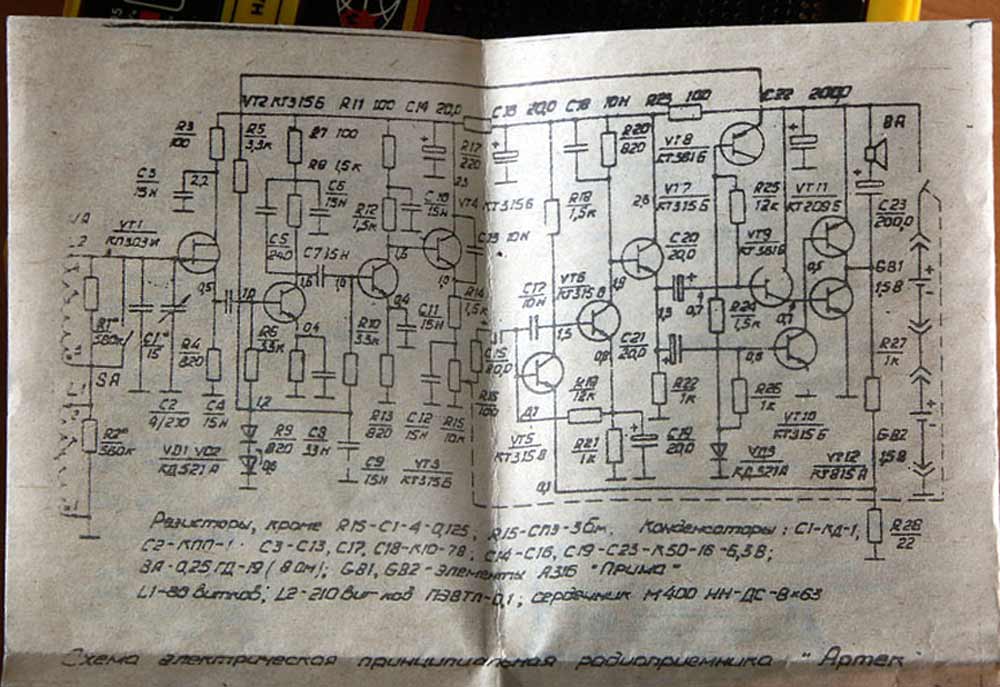 VT2 КТ315Б R11 100 C14 20,0 C16 20,0 C18 10Н R23 100 C22 200,0
R3 100
R5 3,3к
R7 100
R17 220
R20 820
VT8 КТ361Б
BA
C3 15Н
2,2
R8 1,5к
C6 15Н
R12 1,5к
C10 15Н
2,3
VT4 КТ315Б
R18 1,5к
2,8
VT7 КТ315Б
R25 12к
VT11 КТ209Б
C23 200,0
VT1 КП303И
C5 240
C7 15Н
1,6
1,0
1,5
C13 10Н
C20 20,0
VT9 КТ361Б
GB1
1,5В
0,5
1,0
1,0
C17 10Н
VT6 КТ315В
1,9
1,3
0,7
0,5
0,7
R1* 560к
C1* 15
R4 820
R6 33к
0,4
R10 33к
0,4
C11 15Н
R14 1,5к
C15 20,0
1,5
0,8
C21 20,0
R24 1,5к
0,6
R27 1к
SA
R16 100
R19 12к
R22 1к
R26 1к
R2* 560к
C2 9/270
C4 15Н
1,2
R13 820
C12 15Н
R15 10к
VT10 КТ315Б
VD1 VD2 КД521А
0,6
R9 820
C8 33Н
C9 15Н
VT3 КТ315Б
VT5 КТ315В
R21 1к
C19 20,0
VD3 КД521А
VT12 КТ815А
GB2
1,5В
0,1
R28 22
Резисторы, кроме R15-С1-4-0,125, R15-СП3-3бм. Конденсаторы: С1-КД-1,
С2-КПП-1 С3-С13, С17, С18-К10-7В, С14-С16, С19-С23-К50-16-6,3В;
ВА-0,25ГД-19 (8 Ом); GB1, GB2-Элементы А316 "Прима"
L1-80 витков; L2-210 витков ПЭВТЛ-0,1; сердечник М400 НН-ДС-8х63
Схема электрическая принципиальная радиоприемника "Артек"